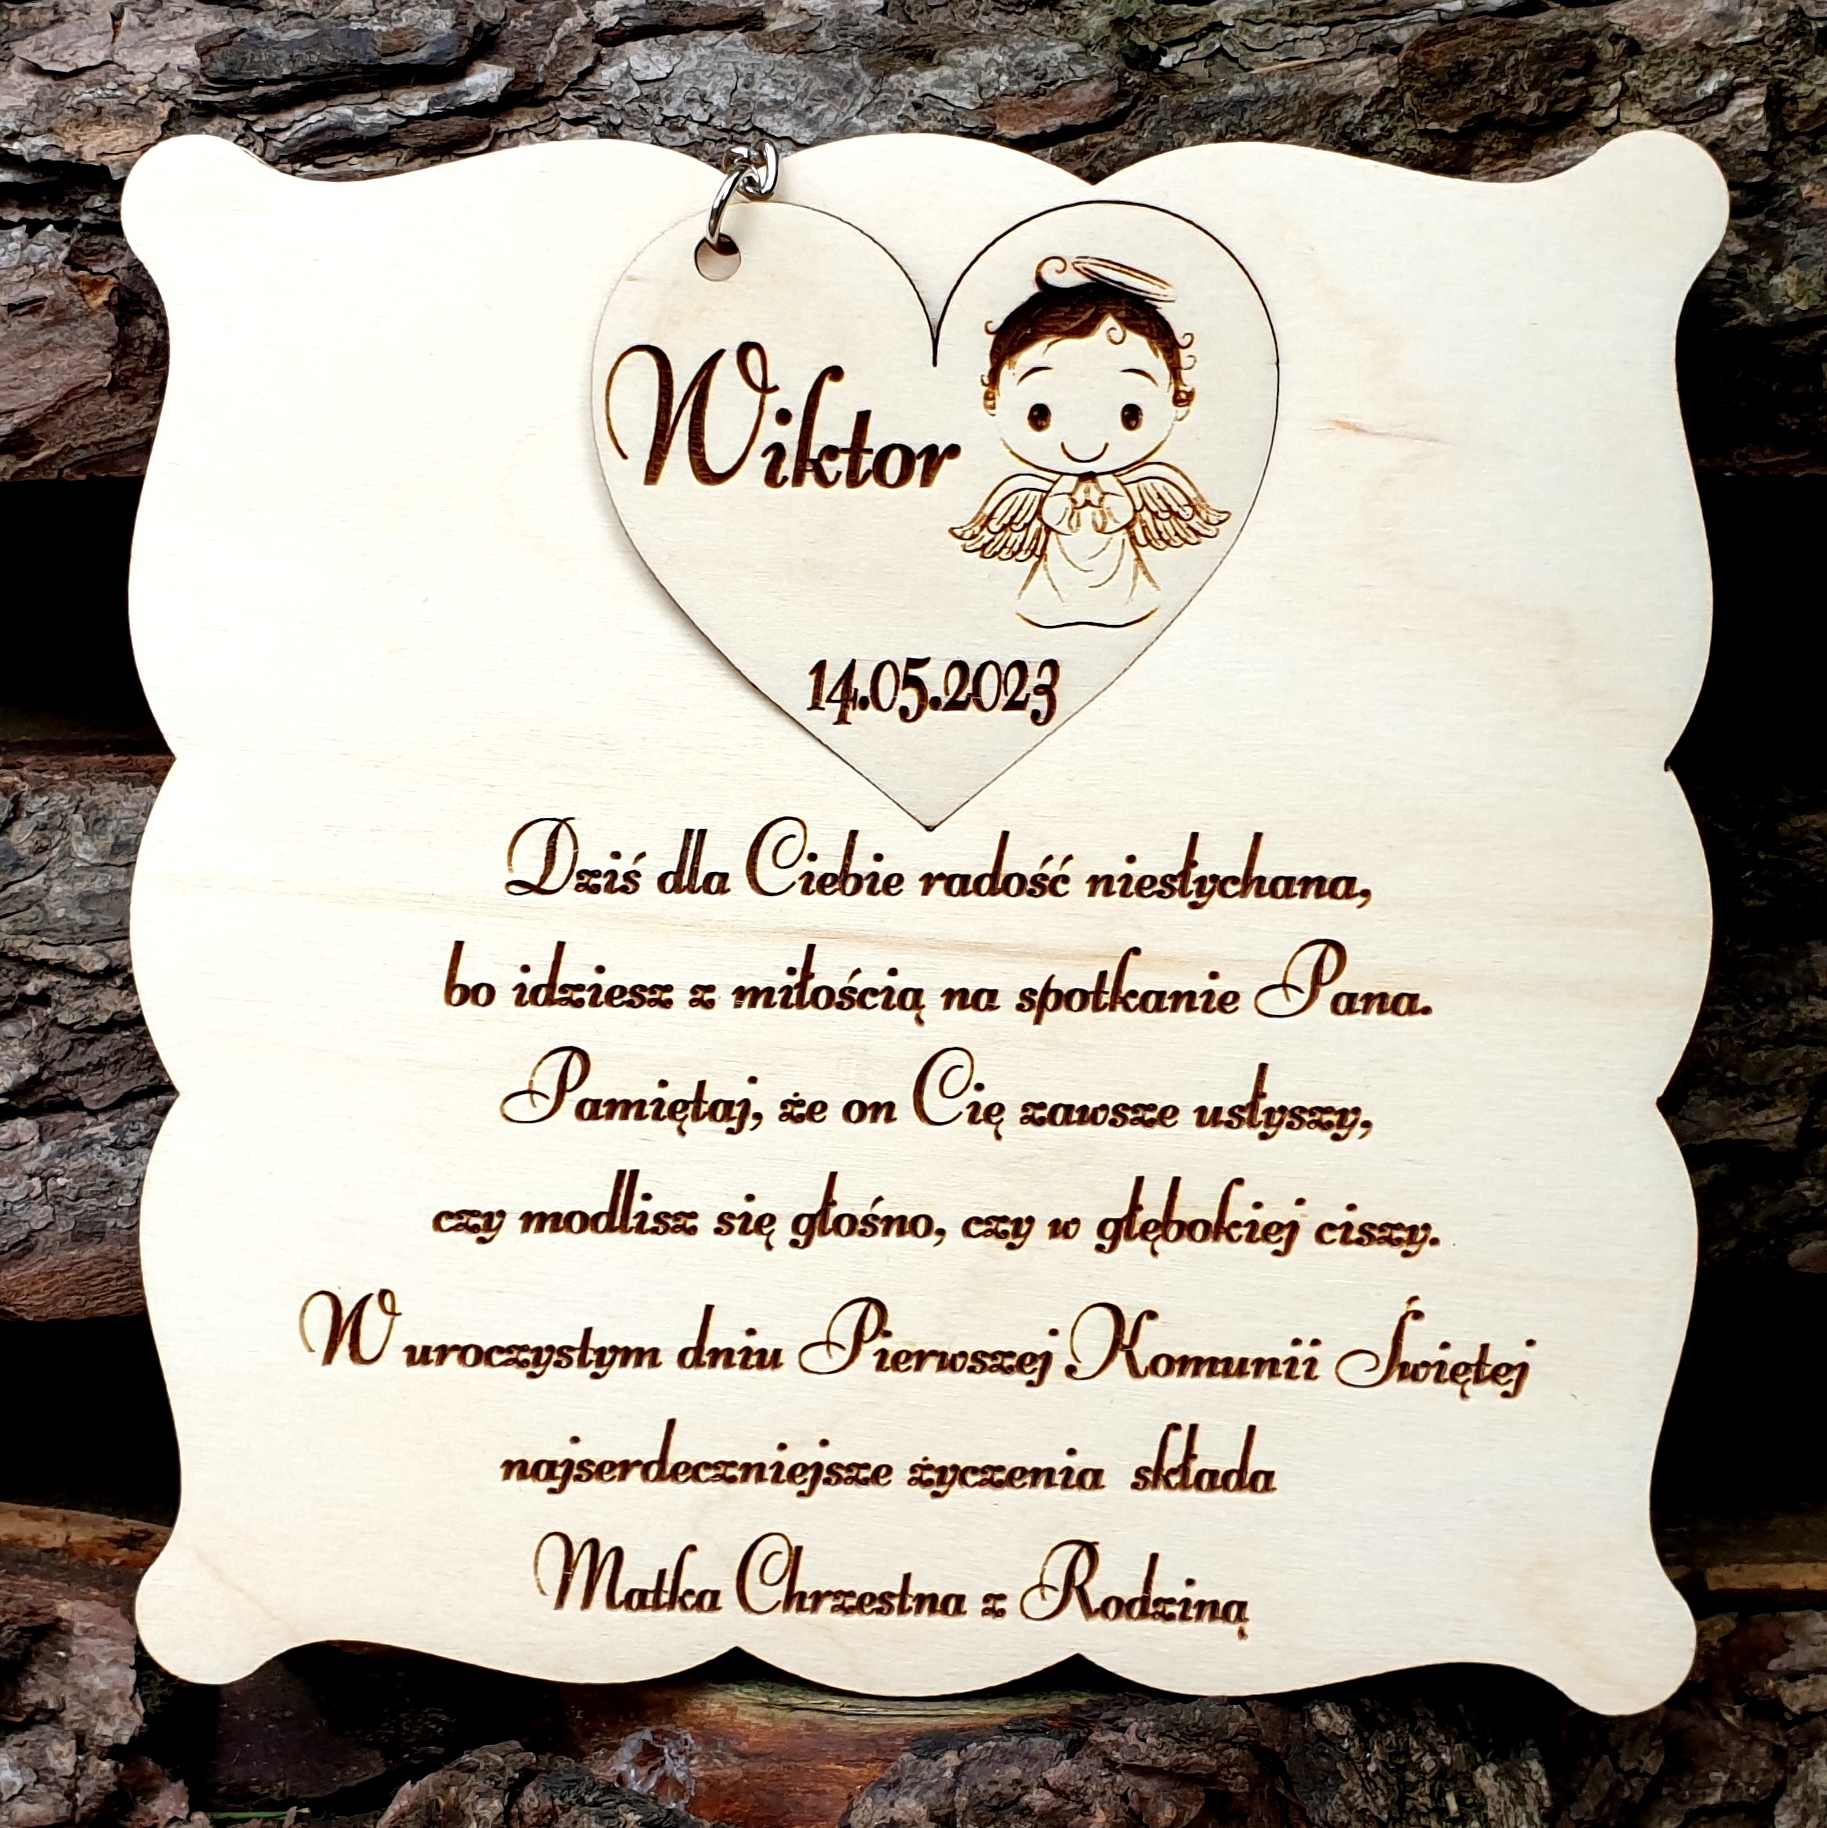 Wiktor
14.05.2023
Dziś dla Ciebie radość niesłychana,
bo idziesz z miłością na spotkanie Pana.
Pamiętaj, że on Cię zawsze usłyszy,
czy modlisz się głośno, czy w głębokiej ciszy.
W uroczystym dniu Pierwszej Komunii Świętej
najserdeczniejsze życzenia składa
Matka Chrzestna z Rodziną